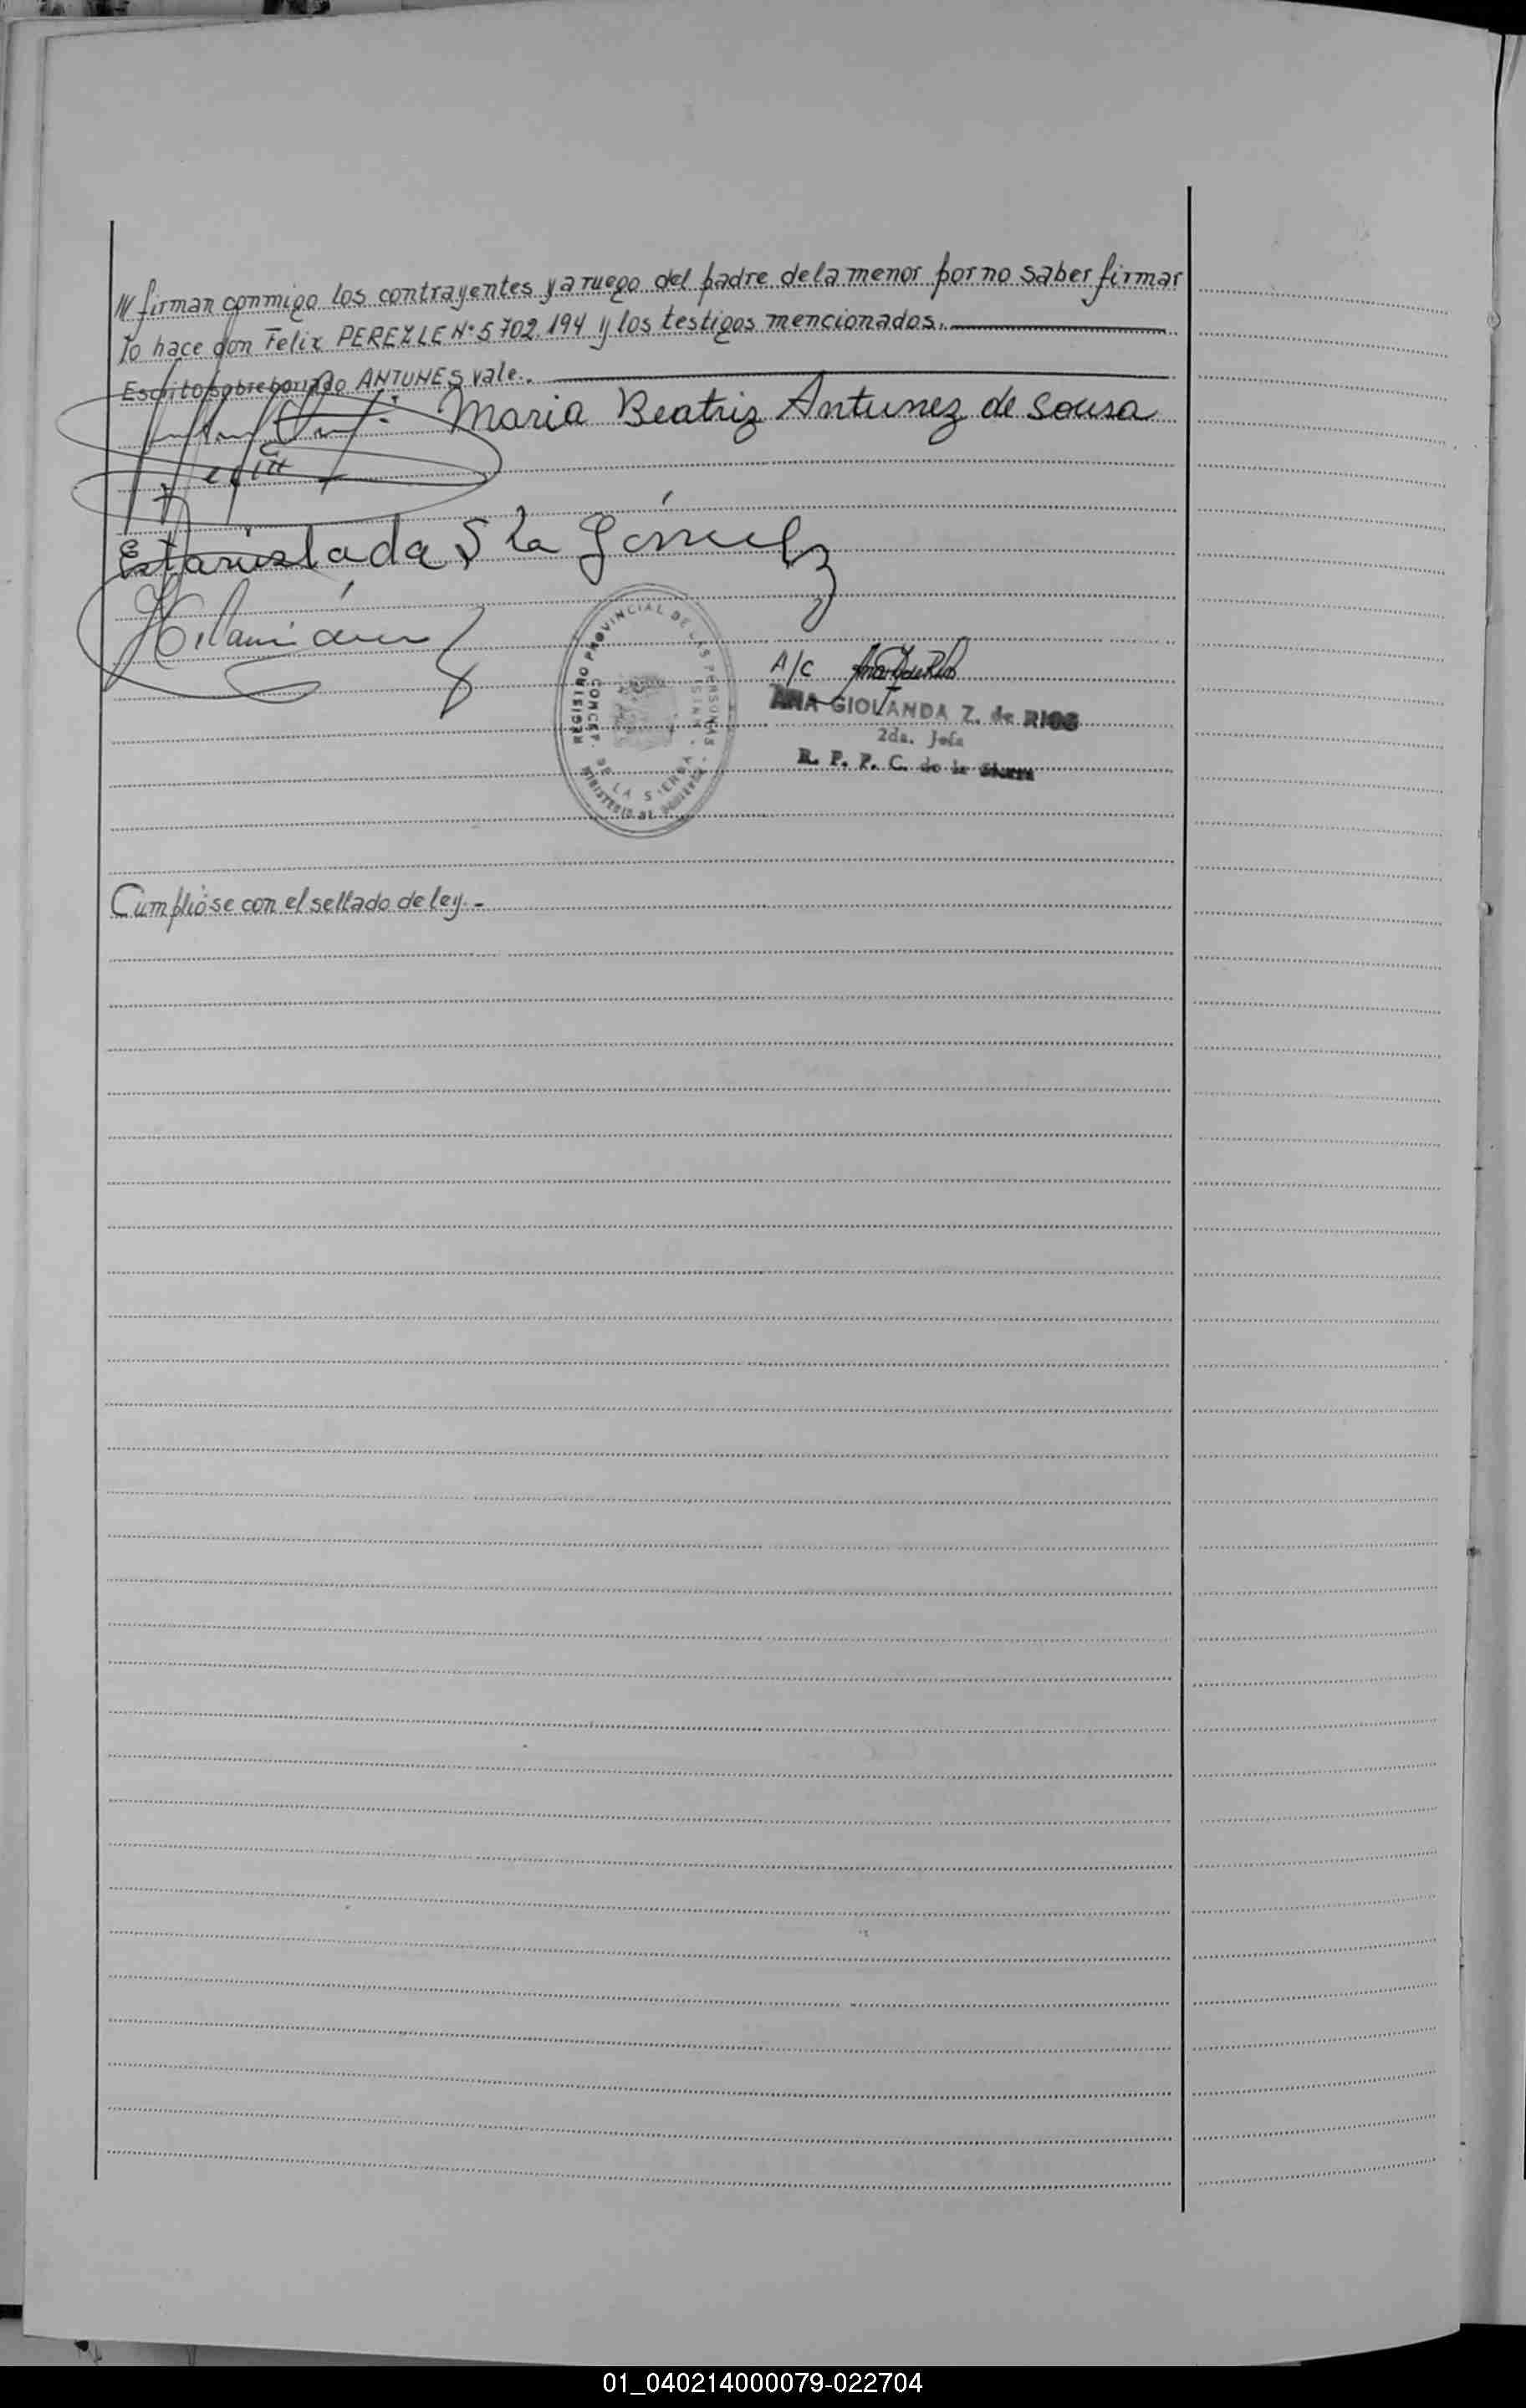 /// firman conmigo los contrayentes y a ruego del padre de la menor por no saber firmar
lo hace don Felix PEREZ LE Nº 5702.194 y los testigos mencionados.
Escrito sobreborrado ANTUNES vale.
Maria Beatriz Antunez de Sousa
Felix
Estanislada S la Gómez
A/C
ANA GIOLANDA Z. de RIOS
2da. Jefa
R. P. P. C. de la Sierra
REGISTRO PROVINCIAL DE LAS PERSONAS
CONCEP. DE LA SIERRA
MINISTERIO DE GOBIERNO
Cumplióse con el sellado de ley.-
01_040214000079-022704